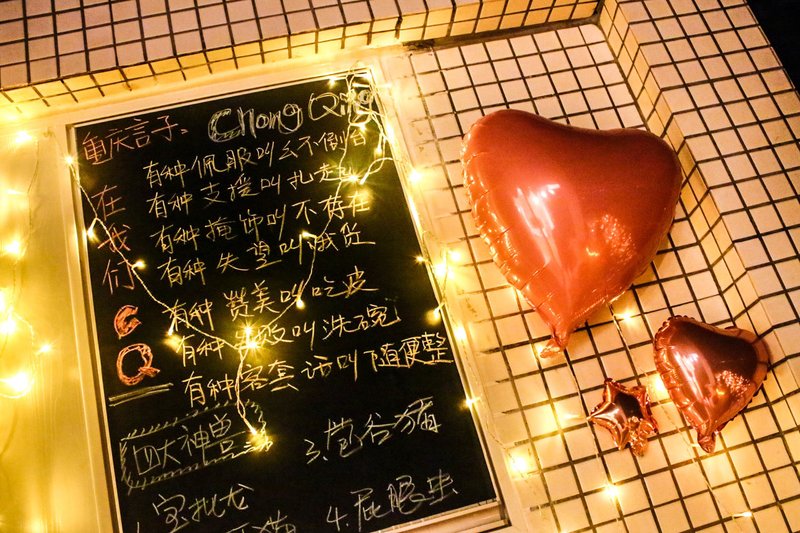 重庆言子、
Chong Qing
在我们
CQ
有种佩服叫么不倒台
有种支援叫扎起
有种掩饰叫不存在
有种失望叫戳货
有种赞美叫吃皮
有种 叫洗碗
有种客套话叫随便整
四大神兽
3.苞谷猫
宝批龙
猫
4.屁眼虫